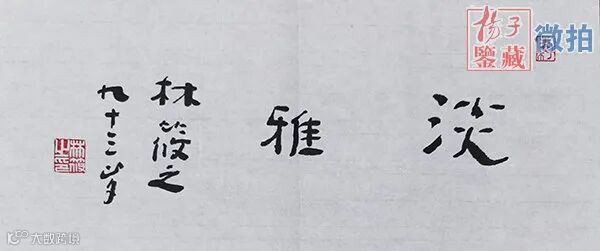 淡雅
林筱之
九十三岁
林筱之印
扬子
鉴藏
微拍
大数跨境